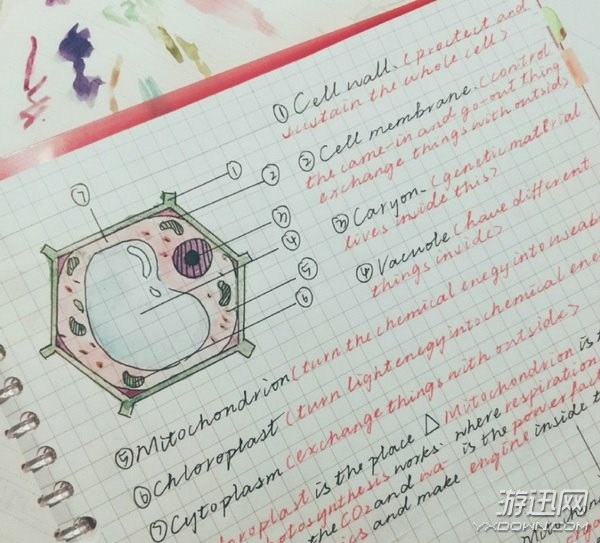 ① Cell wall. (protect and
sustain the whole cell)
② Cell membrane. (control
the came-in and go-out thing
exchange things with outside)
③ Caryon. (genetic material
lives inside this)
④ Vacuole (have different
things inside)
⑤ Mitochondrion (turn the chemical enegy into useab
⑥ Chloroplast (turn light enegy into chemical ene
⑦ Cytoplasm (exchange things with outside)
loroplast is the place △ Mitochondrion is t
hotosynthesis works. where respiration
the CO2 and wa is the power fact
ics and make engine inside t
Mitochon
orga
⑦
①
②
③
④
⑤
⑥
游迅网
VXDOWN.COM